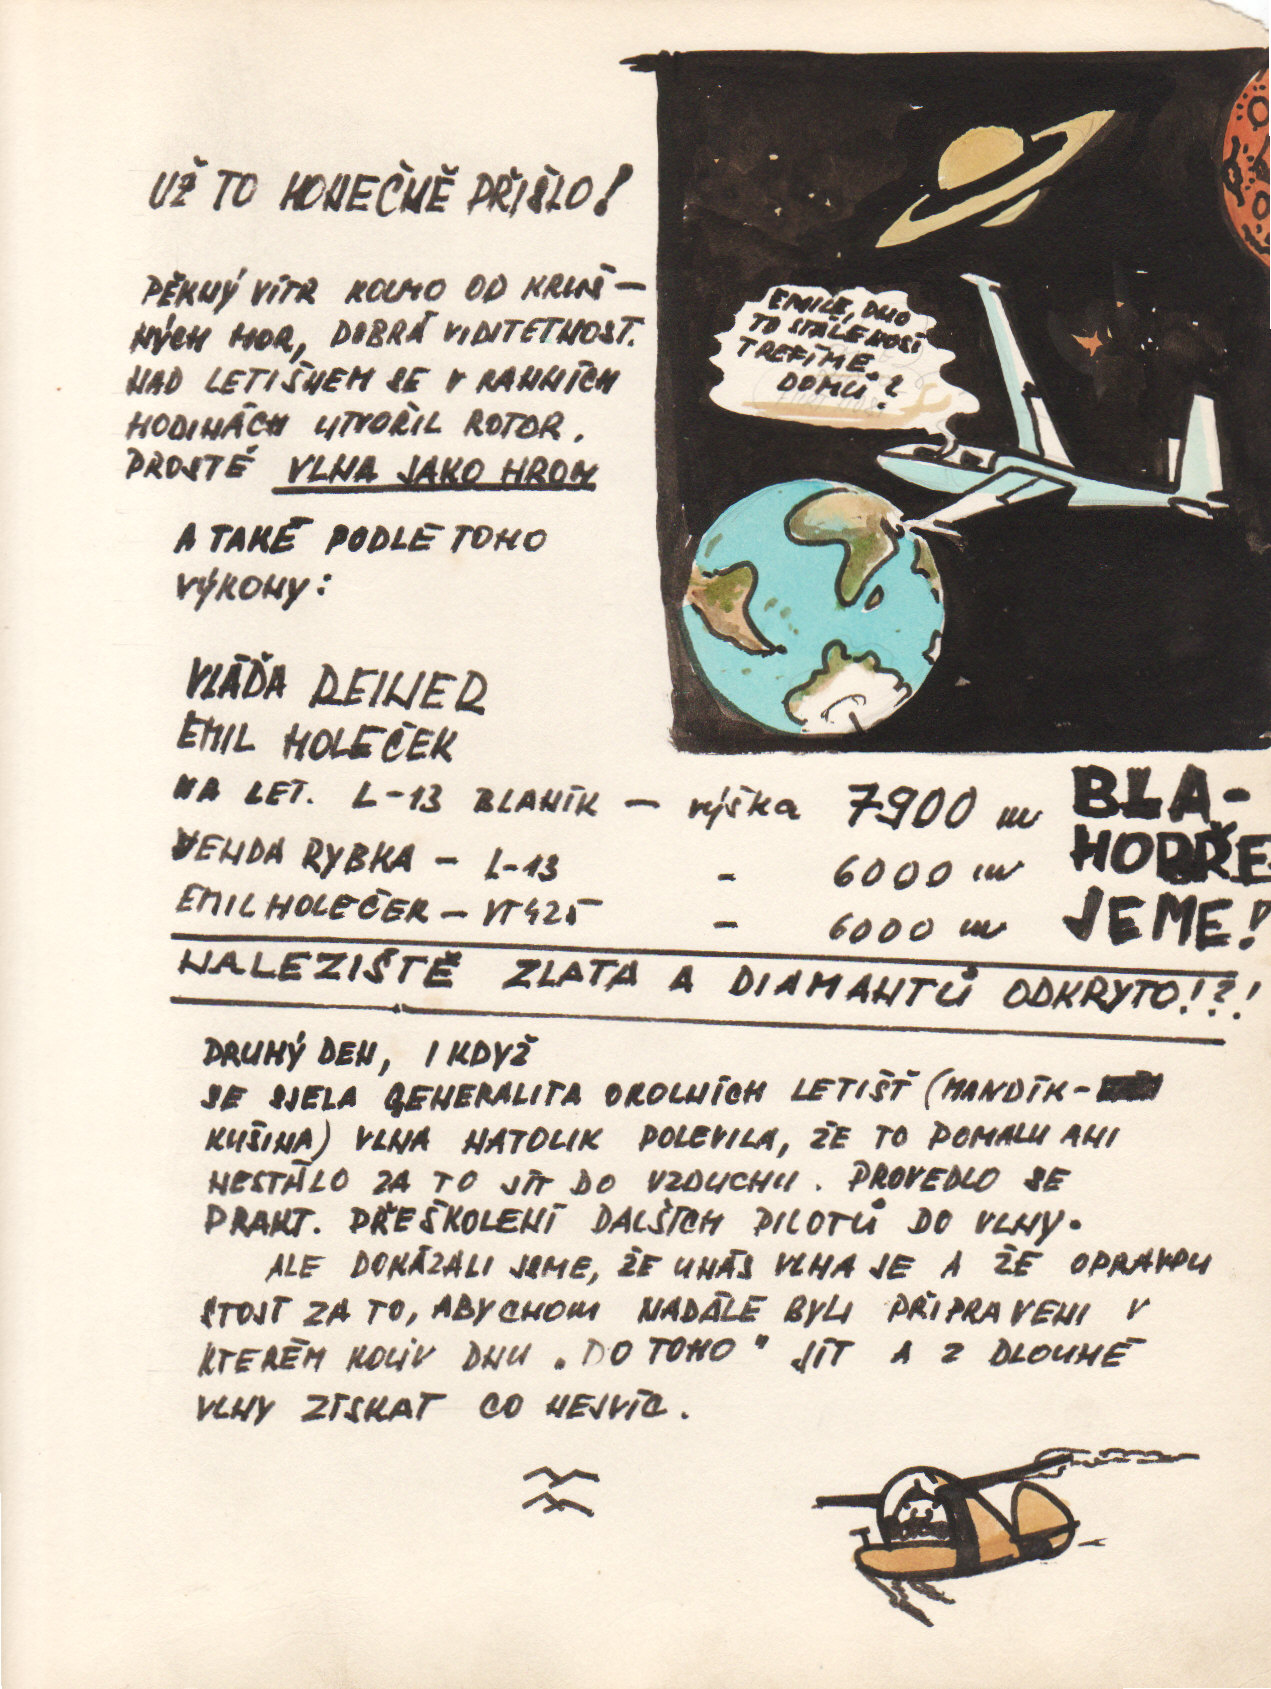 UŽ TO KONEČNĚ PŘIŠLO!
PĚKNÝ VÍTR KOLMO OD KRUŠ-
NÝCH HOR, DOBRÁ VIDITETNOST.
NAD LETIŠNEM SE V RANNÍCH
HODINÁCH UTVOŘIL ROTOR.
PROSTĚ VLNA JAKO HROM
A TAKÉ PODLE TOHO
VÝKONY:
EMILE, DNO
TO STÁLE NOSÍ
TREFÍME
DOMŮ?
VLÁĎA REINER
EMIL HOLEČEK
NA LET. L-13 BLANÍK - výška 7900 m
VENDA RYBKA - L-13 - 6000 m
EMIL HOLEČEK - VT425 - 6000 m
BLA-
HOPŘE
JEME!
NALEZIŠTĚ ZLATA A DIAMANTŮ ODKRYTO!?!
DRUHÝ DEN, I KDYŽ
SE SJELA GENERALITA OKOLNÍCH LETIŠŤ (MANDÍK-
KUŠINA) VLNA NATOLIK POLEVILA, ŽE TO POMALU ANI
NESTÁLO ZA TO JÍT DO VZDUCHU. PROVEDLO SE
PRAKT. PŘEŠKOLENÍ DALŠÍCH PILOTŮ DO VLNY.
ALE DOKÁZALI JSME, ŽE U NÁS VLNA JE A ŽE OPRAVDU
STOJÍ ZA TO, ABYCHOM NADÁLE BYLI PŘIPRAVENI V
KTERÉM KOLIV DNU „DO TOHO" JÍT A Z DLOUHÉ
VLNY ZÍSKAT CO NEJVÍC.